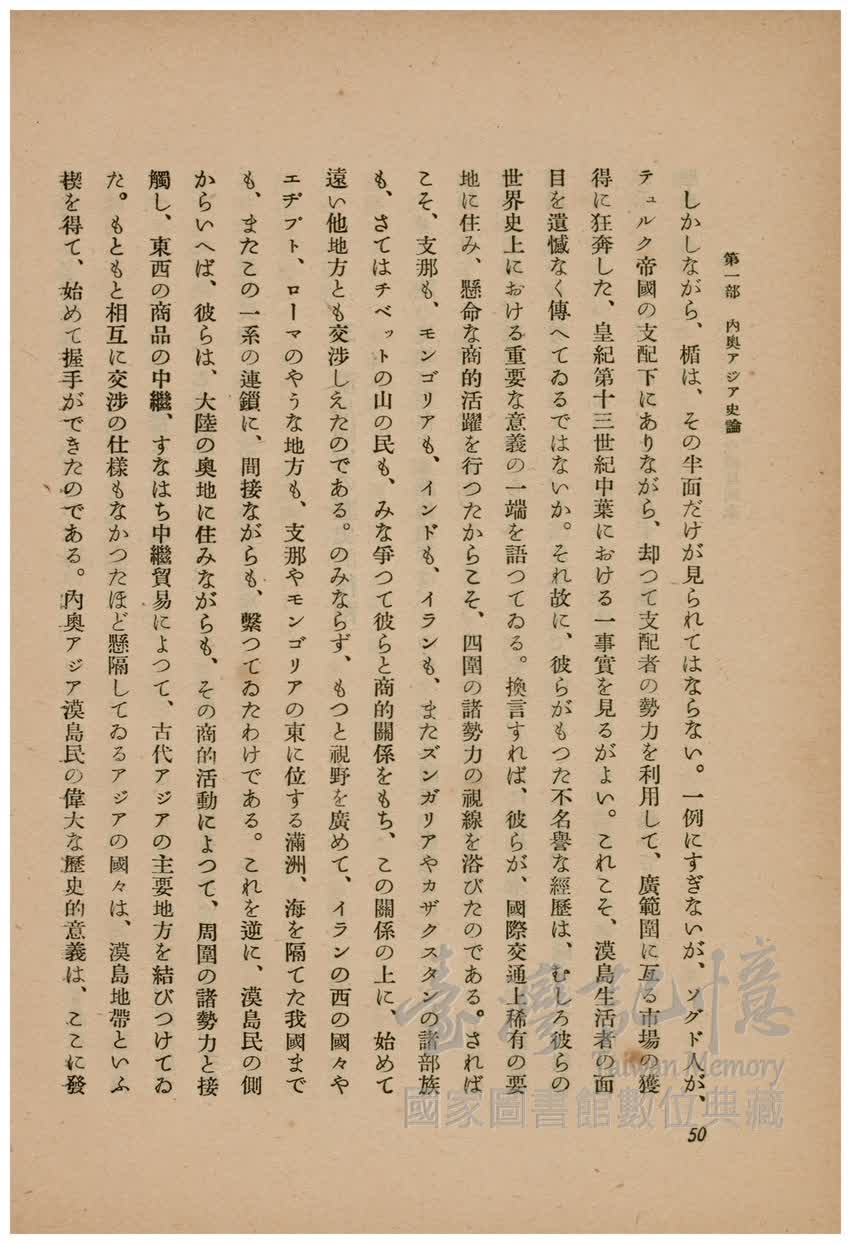 第一部 內奧アジア史論
しかしながら、楯は、その半面だけが見られてはならない。一例にすぎないが、ソグド人が、
テュルク帝國の支配下にありながら、却つて支配者の勢力を利用して、廣範圍に亙る市場の獲
得に狂奔した、皇紀第十三世紀中葉における一事實を見るがよい。これこそ、漠島生活者の面
目を遺憾なく傳へてゐるではないか。それ故に、彼らがもつた不名譽な經歷は、むしろ彼らの
世界史上における重要な意義の一端を語つてゐる。換言すれば、彼らが、國際交通上稀有の要
地に住み、懸命な商的活躍を行つたからこそ、四圍の諸勢力の視線を浴びたのである。されば
こそ、支那も、モンゴリアも、インドも、イランも、またズンガリアやカザクスタンの諸部族
も、さてはチベットの山の民も、みな爭つて彼らと商的關係をもち、この關係の上に、始めて
遠い他地方とも交渉しえたのである。のみならず、もつと視野を廣めて、イランの西の國々や
エヂプト、ローマのやうな地方も、支那やモンゴリアの東に位する滿洲、海を隔てた我國まで
も、またこの一系の連鎖に、間接ながらも、繫つてゐたわけである。これを逆に、漠島民の側
からいへば、彼らは、大陸の奧地に住みながらも、その商的活動によつて、周圍の諸勢力と接
觸し、東西の商品の中繼、すなはち中繼貿易によつて、古代アジアの主要地方を結びつけてゐ
た。もともと相互に交渉の仕樣もなかつたほど懸隔してゐるアジアの國々は、漠島地帶といふ
楔を得て、始めて握手ができたのである。內奧アジア漠島民の偉大な歷史的意義は、ここに發
50
臺灣記憶
Taiwan Memory
國家圖書館數位典藏